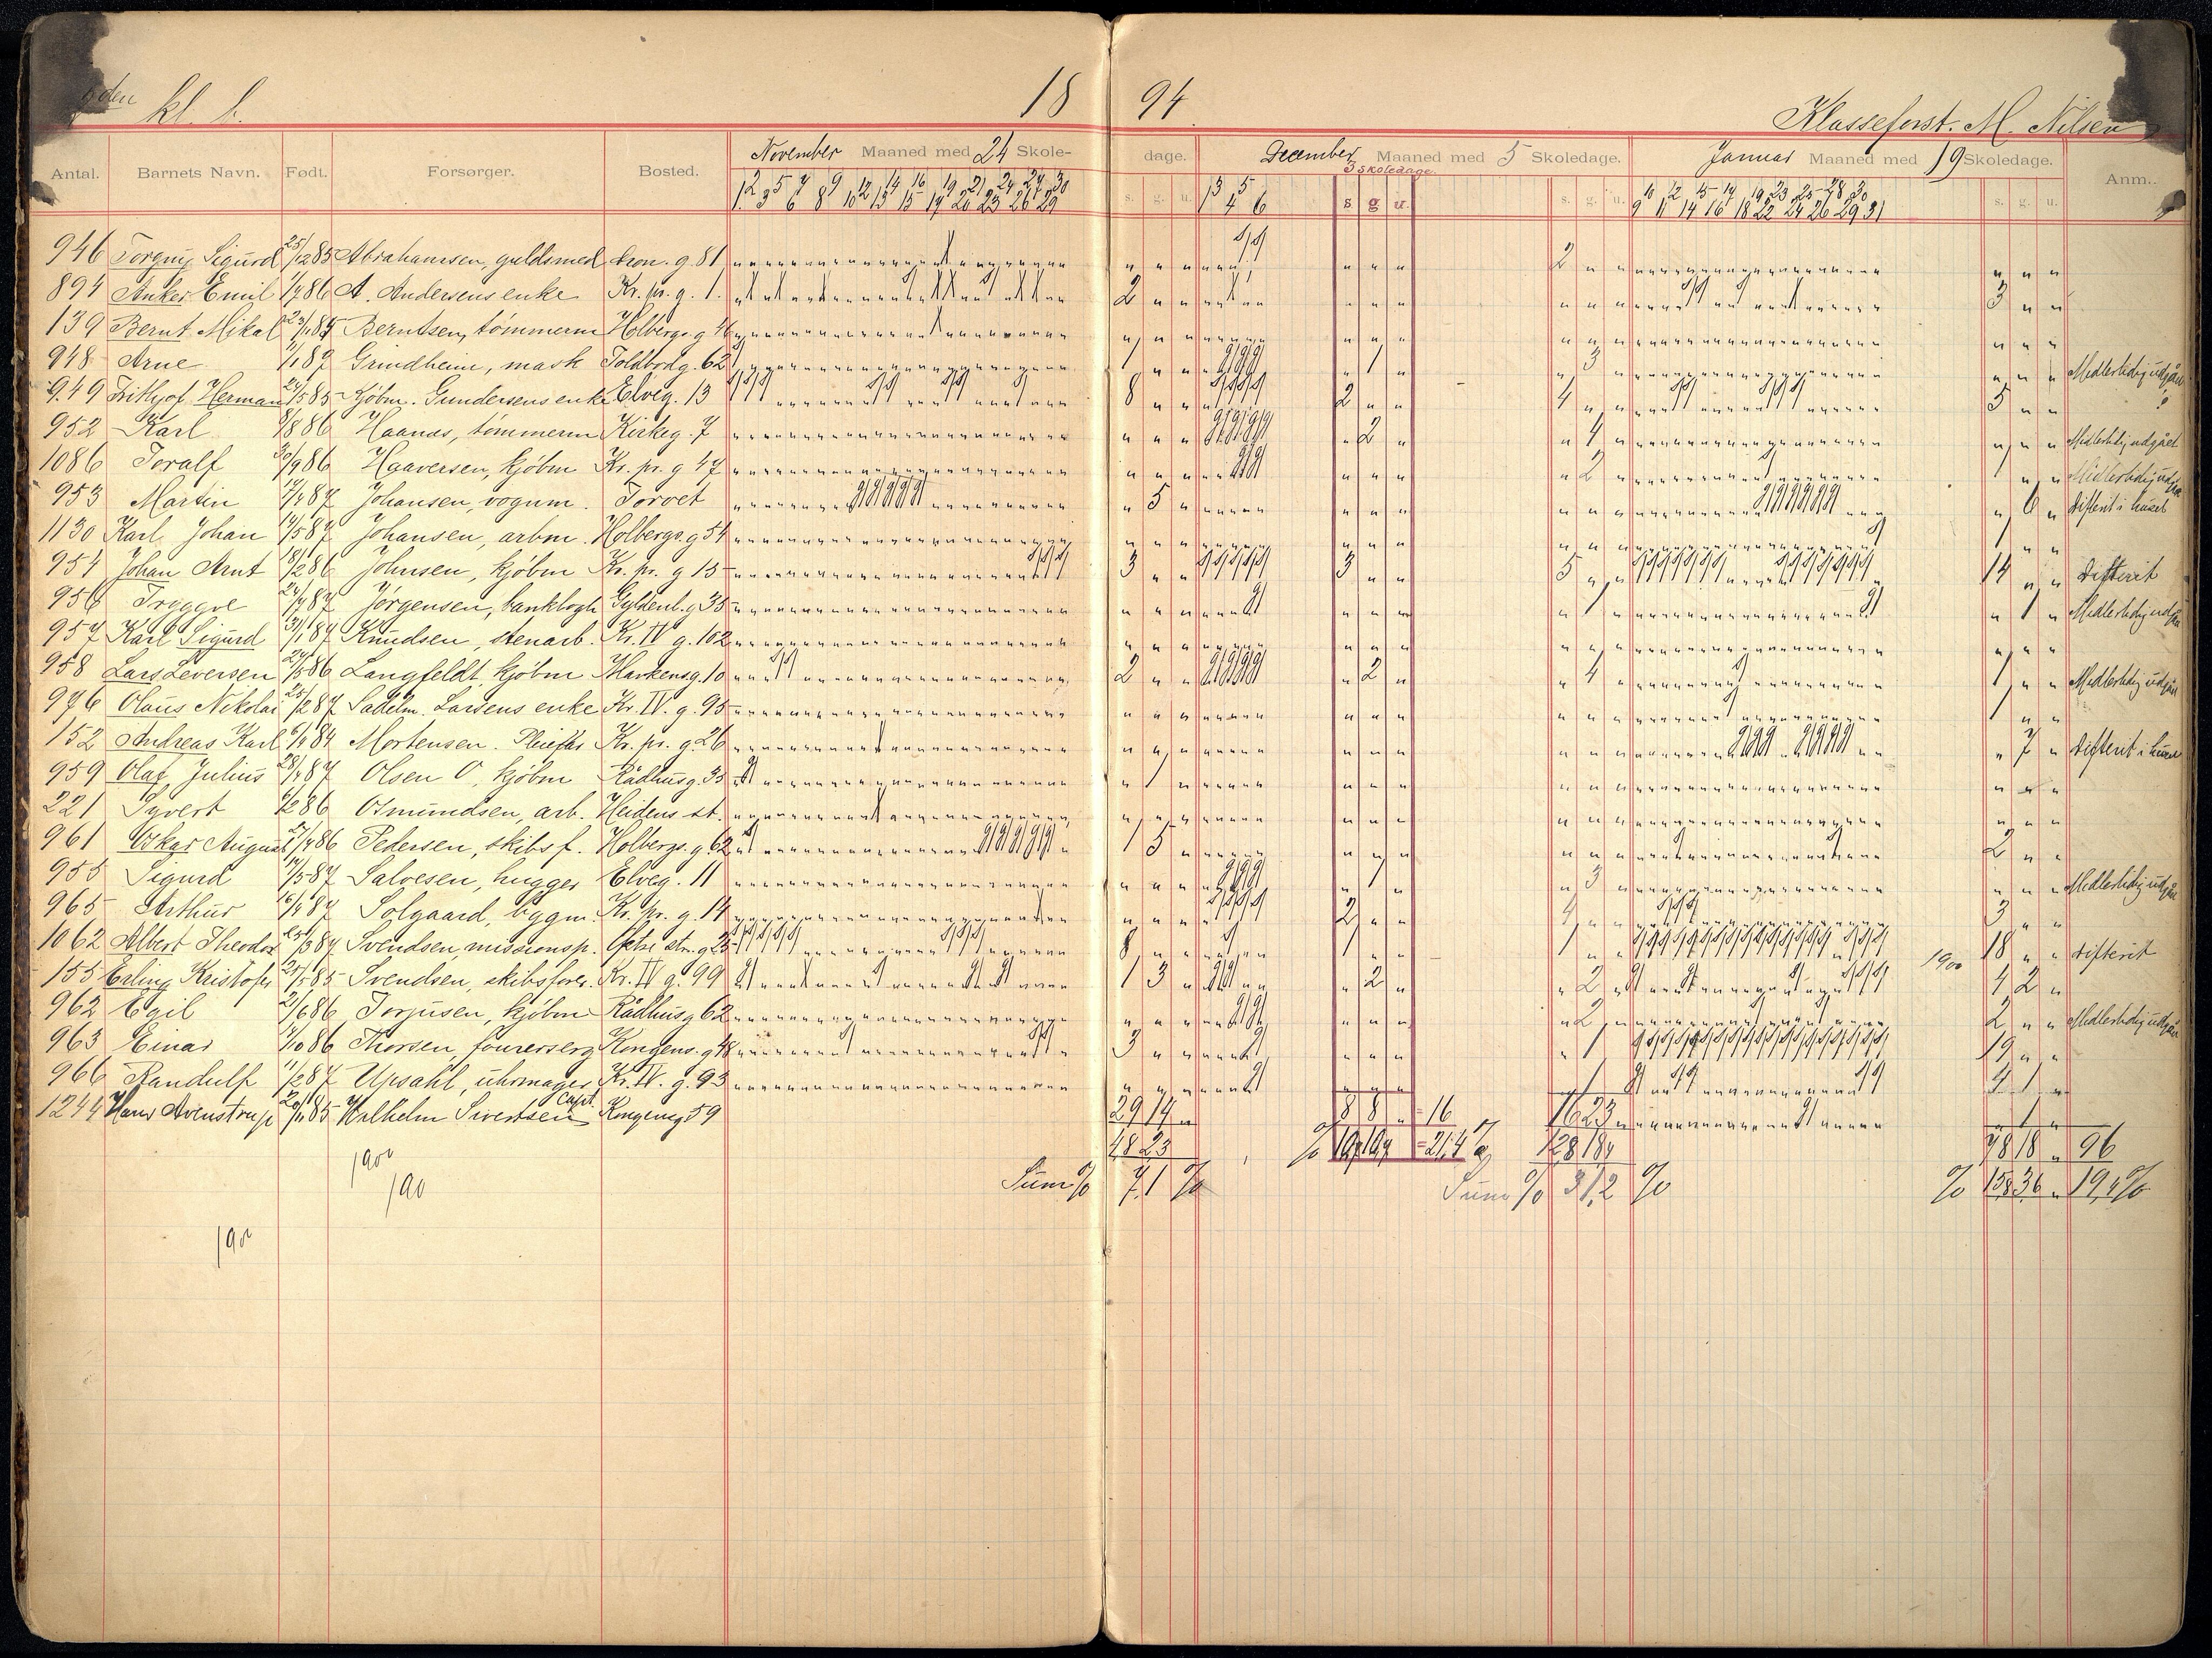 den kl. b. 18 94 Klasseforst. M. Nilsen
Antal. Barnets Navn. Født. Forsørger. Bosted. November Maaned med 24 Skole- dage. December Maaned med 5 Skoledage. Januar Maaned med 19 Skoledage. Anm.
3 skoledage.
s. g. u. s g u. s. g. u. s. g. u.
946 Torgny Sigurd 25/12 85 Abrahamsen, guldsmed dron. g. 81 2
894 Anker Emil 1/7 86 A. Andersens enke Kr. pr. g. 1. 2 3
139 Bernt Mikal 23/11 85 Berntsen, tømmerm Holbergs. g 46
948 Arne 1/1 87 Grindheim, mask Toldbodg. 62 1 1 3 Midlertidig udgået
949 Frithjof Herman 24/5 85 Kjøbm. Gundersens enke Elveg. 13 8 2 4 5 ?
952 Karl 8/8 86 Haanes, tømmerm Kirkeg. 7 2 4 Midlertidig udgået
1086 Toralf 30/9 86 Haaversen, kjøbm Kr. pr. g 47 2 1 Midlertidig udgået
953 Martin 19/4 87 Johansen, vognm. Torvet 5 6 difterit i huset
1130 Karl Johan 14/5 87 Johansen, arbm. Holbergs. g 54 1
954 Johan Arnt 18/2 86 Johnsen, kjøbm Kr. pr. g 15 3 3 5 14 difterit
956 Tryggve 24/7 87 Jørgensen, bankbogh Gyldenl. g 35 1 1 Midlertidig udgået
957 Karl Sigurd 31/1 87 Knudsen, stenarb. Kr. IV g. 102
958 Lars Leversen 24/5 86 Langfeldt, kjøbm Markensg. 10 2 2 4 1 Midlertidig udgået
976 Olaus Nikolai 25/2 87 Sadelm. Larsens enke Kr. IV. g. 95 1
152 Andreas Karl 6/9 84 Mortensen. Pleiefar Kr. pr. g. 26 7 difterit i huset
959 Olaf Julius 28/4 87 Olsen O, kjøbm Rådhusg. 35 1
221 Syvert 6/2 86 Osmundsen, arb. Heidens st.
961 Oskar August 27/4 86 Pedersen, skibsf. Holbergs. g. 62 1 5 2
955 Sigurd 17/5 87 Salvesen, hugger Elveg. 11 1 3 Midlertidig udgået
965 Arthur 16/4 87 Solgaard, byggm. Kr. pr. g. 14 2 4 3
1062 Albert Theodor 25/3 87 Svendsen, missionsp. Østre str. g 25 8 1 1 18 difterit
155 Erling Kristofer 25/7 85 Svendsen, skibsfører. Kr. IV g. 99 1 3 2 2 4 2
962 Egil 21/6 86 Torjusen, kjøbm Rådhusg 62 2 2 Midlertidig udgået
963 Einar 11/10 86 Thorsen, fourerserg Kongens. g 48 3 1 19
966 Randulf 11/2 87 Upsahl, uhrmager Kr. IV. g. 93 1 4 1
1244 Hans Avenstrup 20/11 85 Wilhelm Sivertsen Capt. Kongensg 59 29 14 8 8 = 16 16 23 1
4,8 2,3 % 10,7 10,7 = 21,4 % 12,8 18,4 78 18 96
Sum % 7,1 % Sum % 31,2 % % 15,8 3,6 19,4 %
1900
190
190